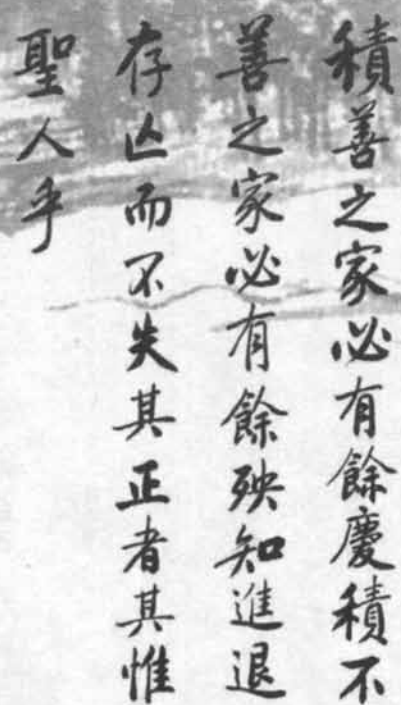 積善之家必有餘慶積不
善之家必有餘殃知進退
存亾而不失其正者其惟
聖人乎